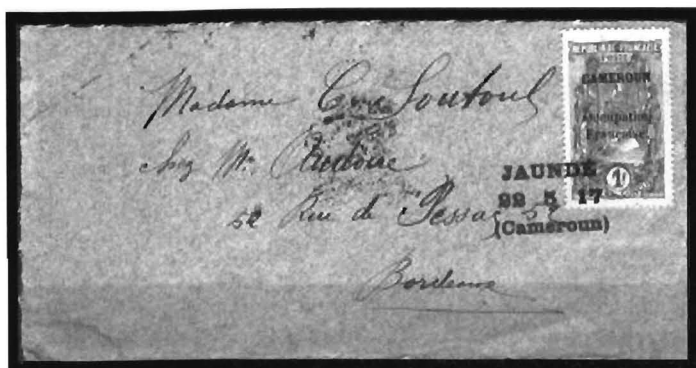 REPUBLIQUE FRANÇAISE
POSTE
CAMEROUN
Occupation
Française
1
Madame Soutoul
chez Mr
52 Rue de Pessac 52
Bordeaux
JAUNDE
22 5 17
(Cameroun)